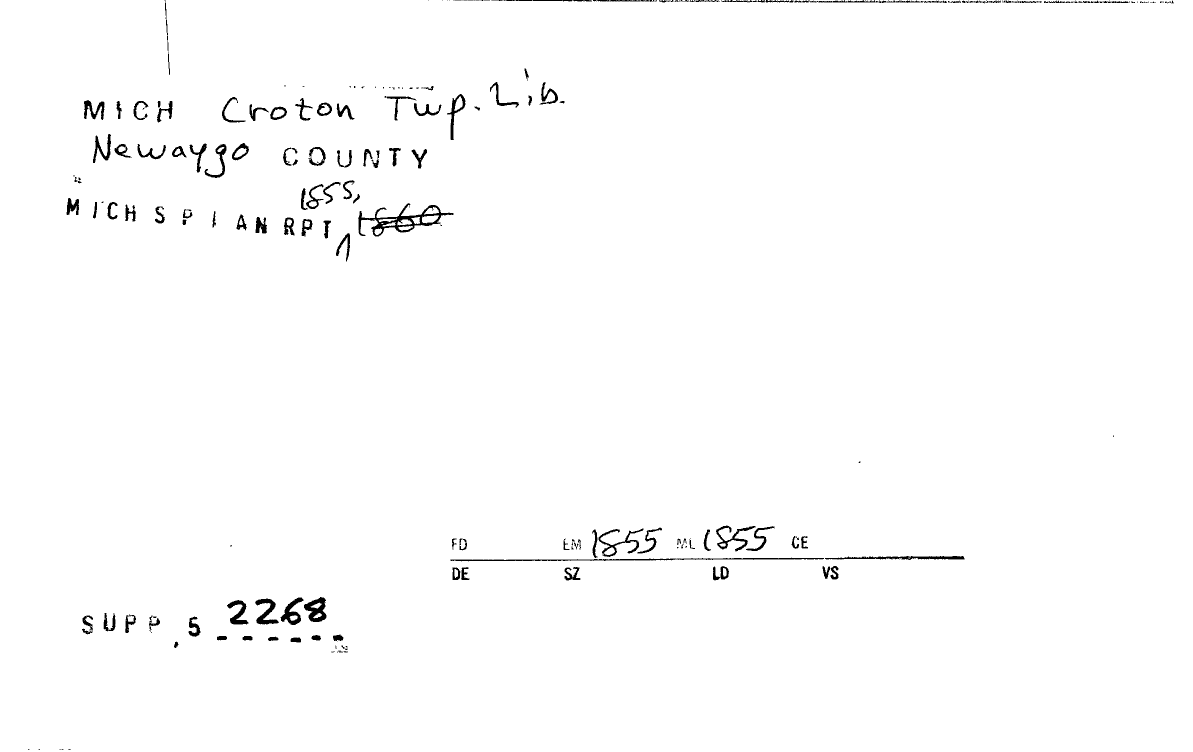 MICH Croton Twp. Lib.
Newaygo COUNTY
1855,
MICH S P I AN RPT 1860
FD EM 1855 ML 1855 CE
DE SZ LD VS
SUPP, 5 2268